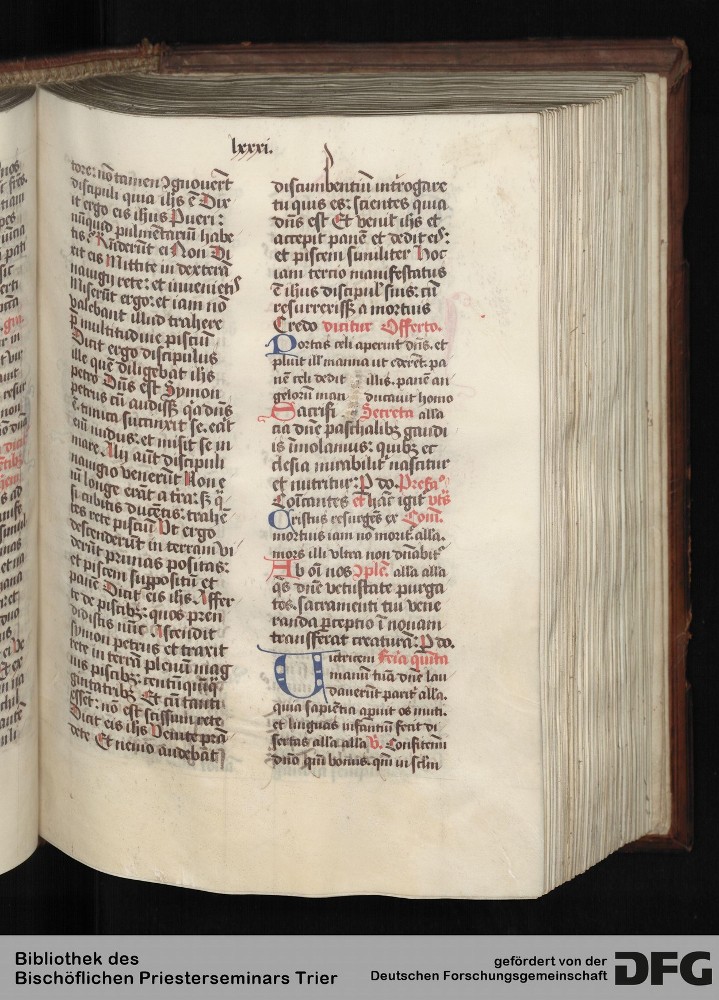 lxxxi.
tore: nō tamen ꝯgnouerūt
discipuli quia ihs ē Dix
it ergo eis ihus Pueri:
nūquid pulmētariū habe
tis. Rn̄derūt ei Non Di
xit eis Mittite in dexterā
nauigij rete: et inuenietis
Miserūt ergo: et iam nō
valebant illud trahere
p̄ multitudine pisciū
Dicit ergo discipulus
ille quē diligebat ihs
petro Dn̄s est Symon
petrus cū audiss; qꝛ dn̄s
ē. tunica succinxit se. eāt
eī nudus: et misit se in
mare. Alij aūt discipuli
nauigio venerūt Non e
nī longe erāt a tr̄a: s; q̄
si cubitis ducētis: trahē
tes rete pisciū Ut ergo
descenderūt in terram vi
derūt prunas positas:
et piscem suppositū et
panē Dicit eis ihs Affer
te de piscibꝫ: quos pren
didistis nūc Ascendit
symon petrus et traxit
rete in terrā plenū mag
nis piscibꝫ: centūquīq̄
gintatribꝫ Et cū tanti
essēt: nō est scissum rete
Dicit eis ihs Venite prā
dete Et nemo audebāt
discumbentiū introgare
tu quis es: scientes quia
dn̄s est Et venit ihs et
accepit panē et dedit eis:
et piscem similiter Hoc
iam tercio manifestatus
ē ihus discipul' suis: cū
resurrexiss; a mortuis
Credo dicitur Offerto.
Portas celi aperuit dn̄s. et
pluit ill' manna ut ederēt. pa
nē celi dedit illis. panē an
gelorū man ducauit homo
Sacrifi Secreta alla
cia dn̄e paschalibꝫ gaudi
is īmolamus: quibꝫ ec
clesia mirabilit' nascitur
et nutritur: P do. Prefa°
Cōicantes et hāc igit' vts̄
Cristus resurgēs ex Com̄.
mortuis iam nō morit' alla.
mors illi vltra non dn̄abit'
Ab oī nos ꝯplē. alla alla
q̄s dn̄e vetustate purga
tos. sacramenti tui vene
randa ꝑceptio ī nouam
transferat creaturā: P do.
Uictricem feria quīta
manū tuā dn̄e lau
dauerūt parit' alla.
quia sapiētia apuit os muti.
et linguas infantiū fecit di
sertas alla alla V. Confitemī
dn̄o qm̄ bonus. qm̄ in sclm̄
Bibliothek des
Bischöflichen Priesterseminars Trier
gefördert von der
Deutschen Forschungsgemeinschaft
DFG